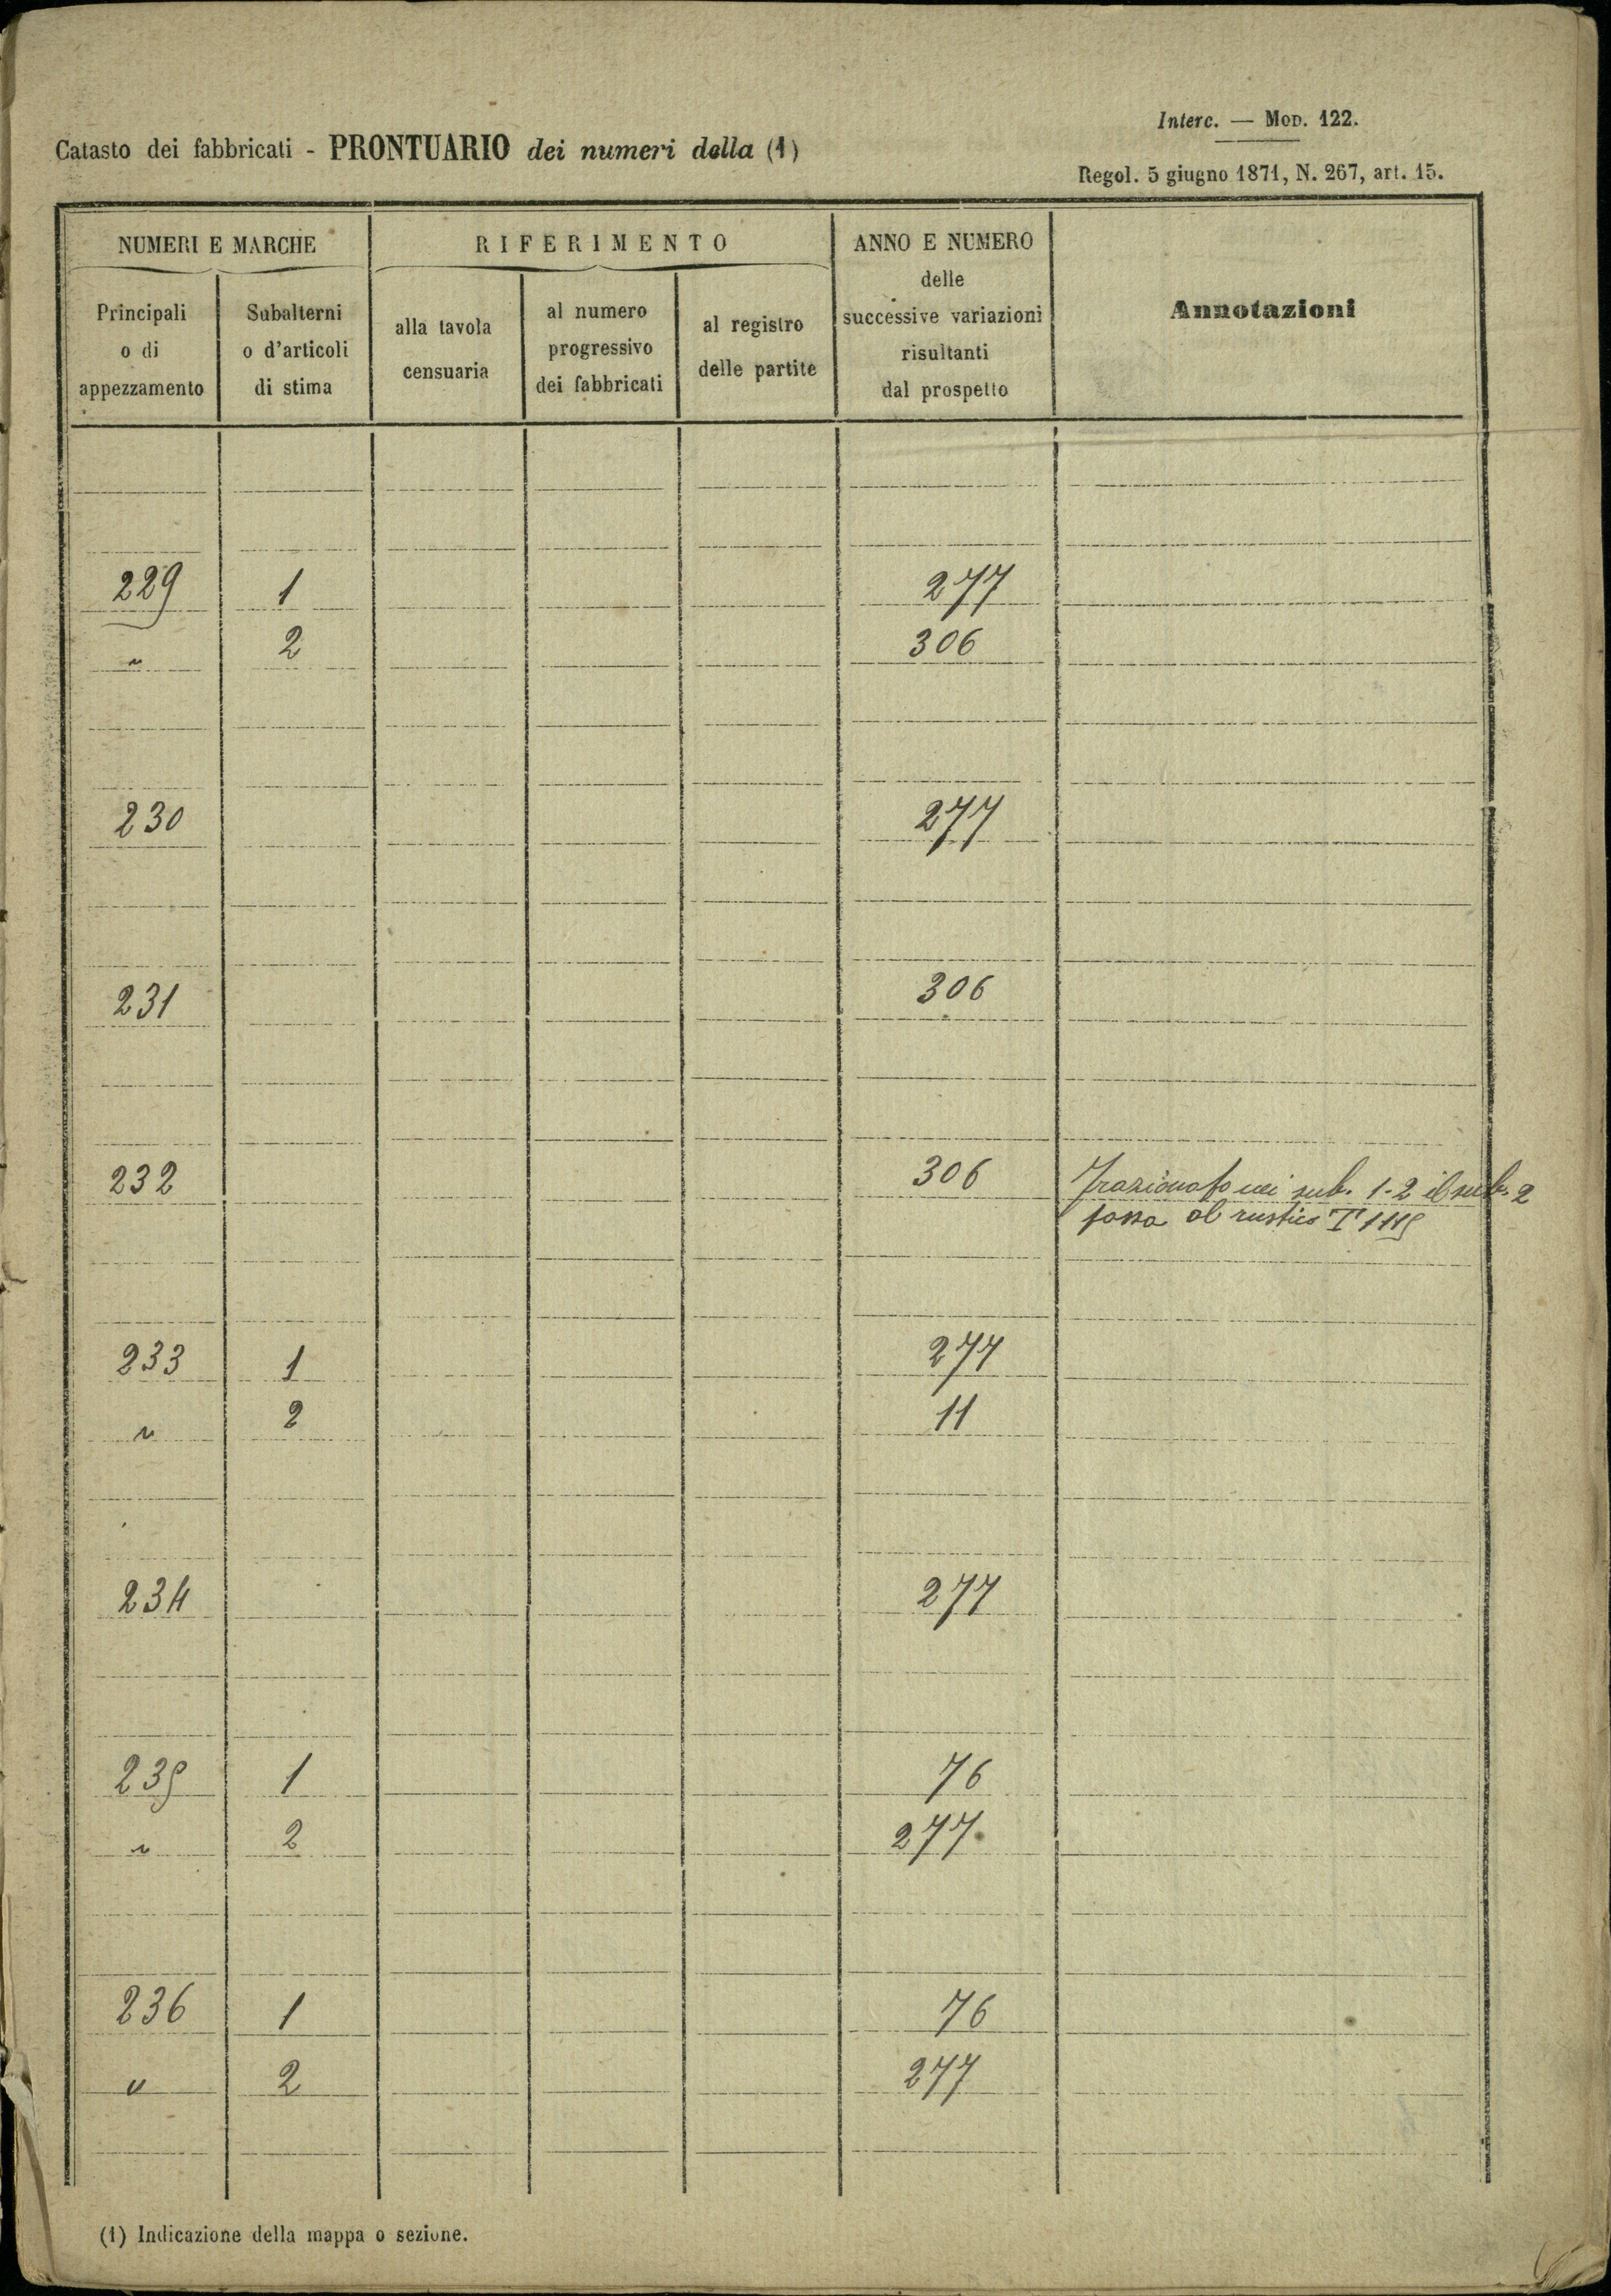 Interc. — Mod. 122.
Catasto dei fabbricati - PRONTUARIO dei numeri della (1)
Regol. 5 giugno 1871, N. 267, art. 15.
NUMERI E MARCHE
RIFERIMENTO
ANNO E NUMERO
delle
successive variazioni
risultanti
dal prospetto
Annotazioni
Principali
o di
appezzamento
Subalterni
o d'articoli
di stima
alla tavola
censuaria
al numero
progressivo
dei fabbricati
al registro
delle partite
229 1 277
" 2 306
230 277
231 306
232 306 Frazionato nei sub. 1-2 il sub. 2
passa al rustico T 1115
233 1 277
" 2 11
234 277
235 1 76
" 2 277
236 1 76
" 2 277
(1) Indicazione della mappa o sezione.